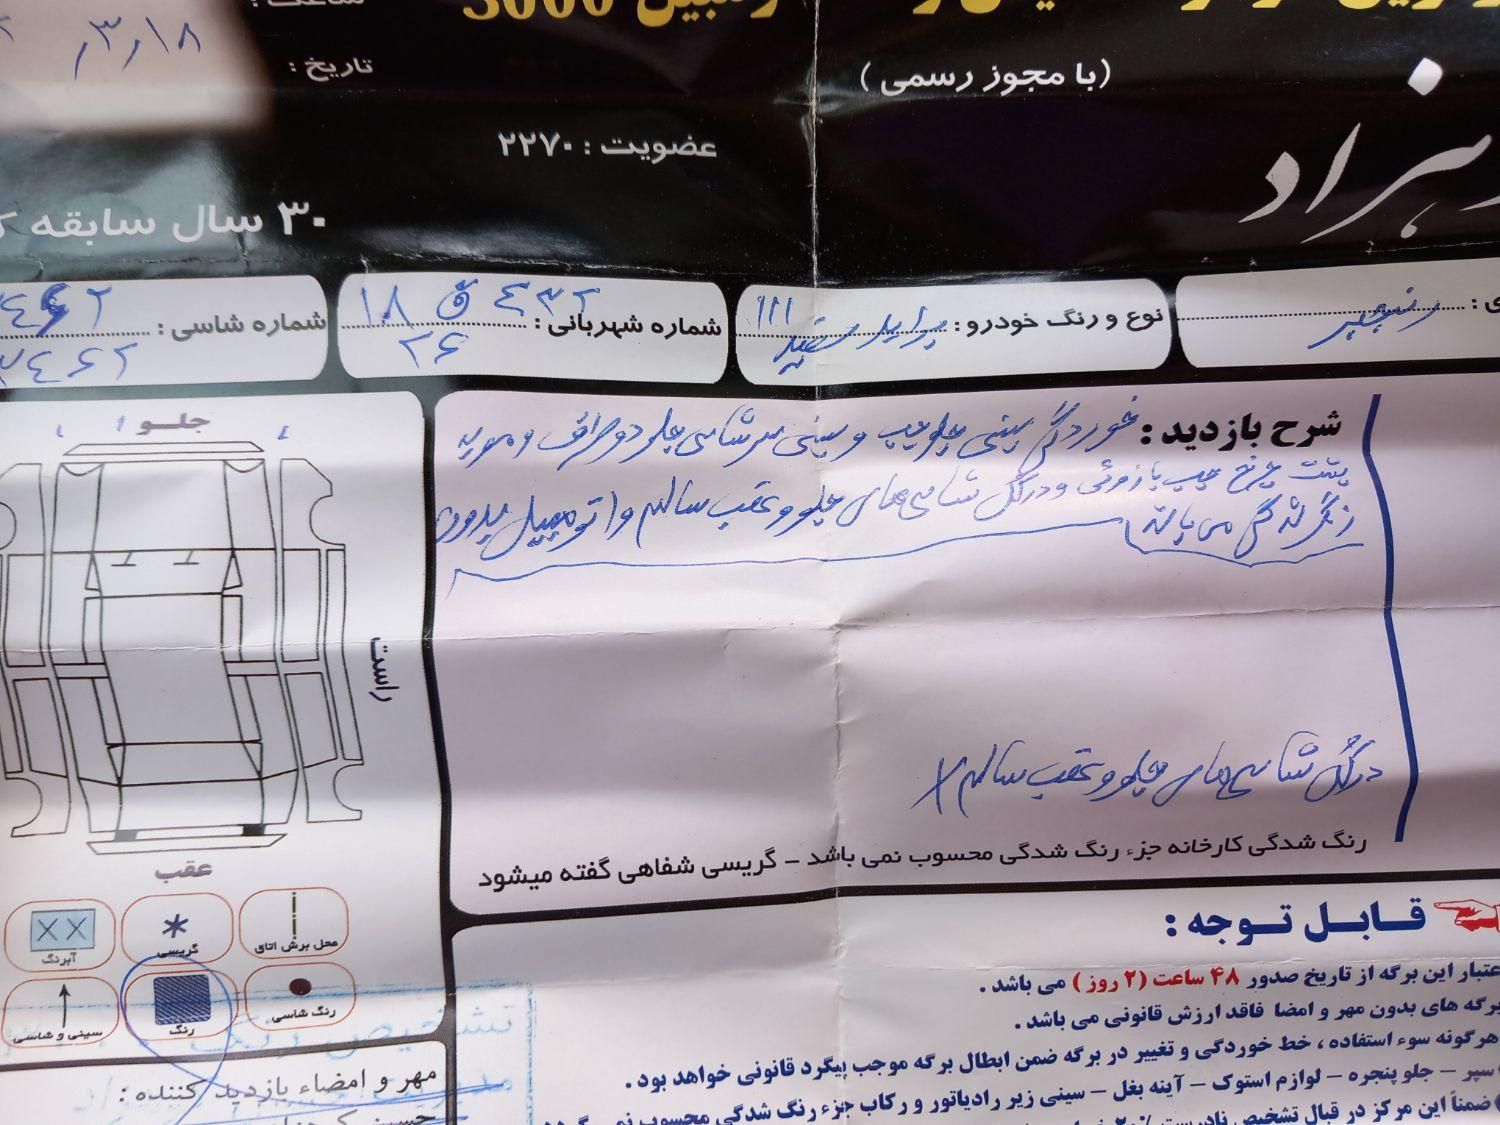 3000
(با مجوز رسمی)
ساعت :
تاریخ :
۳٫۱۸
عضویت : ۲۲۷۰
۳۰ سال سابقه
نوع و رنگ خودرو : پراید سفید ۱۱۱
شماره شهربانی : ۴۳۲ ق ۱۸
۲۶
شماره شاسی :
شرح بازدید : خوردگی سینی جلو چپ و سینی سر شاسی جلو دو طرف و مویه
پشت چرخ چپ بازموئی و درکل شاسی های جلو و عقب سالم و اتومبیل بدون
رنگ شدگی می باشد
درکل شاسی های جلو و عقب سالم
رنگ شدگی کارخانه جزء رنگ شدگی محسوب نمی باشد – گریسی شفاهی گفته میشود
جلو
راست
عقب
محل برش اتاق
گریسی
آبرنگ
رنگ شاسی
رنگ
سینی و شاسی
مهر و امضاء بازدید کننده :
قابل توجه :
اعتبار این برگه از تاریخ صدور ۴۸ ساعت (۲ روز) می باشد .
برگه های بدون مهر و امضا فاقد ارزش قانونی می باشد .
هرگونه سوء استفاده ، خط خوردگی و تغییر در برگه ضمن ابطال برگه موجب پیگرد قانونی خواهد بود .
سپر – جلو پنجره – لوازم استوک – آینه بغل – سینی زیر رادیاتور و رکاب جزء رنگ شدگی محسوب نمی
ضمناً این مرکز در قبال تشخیص نادرست